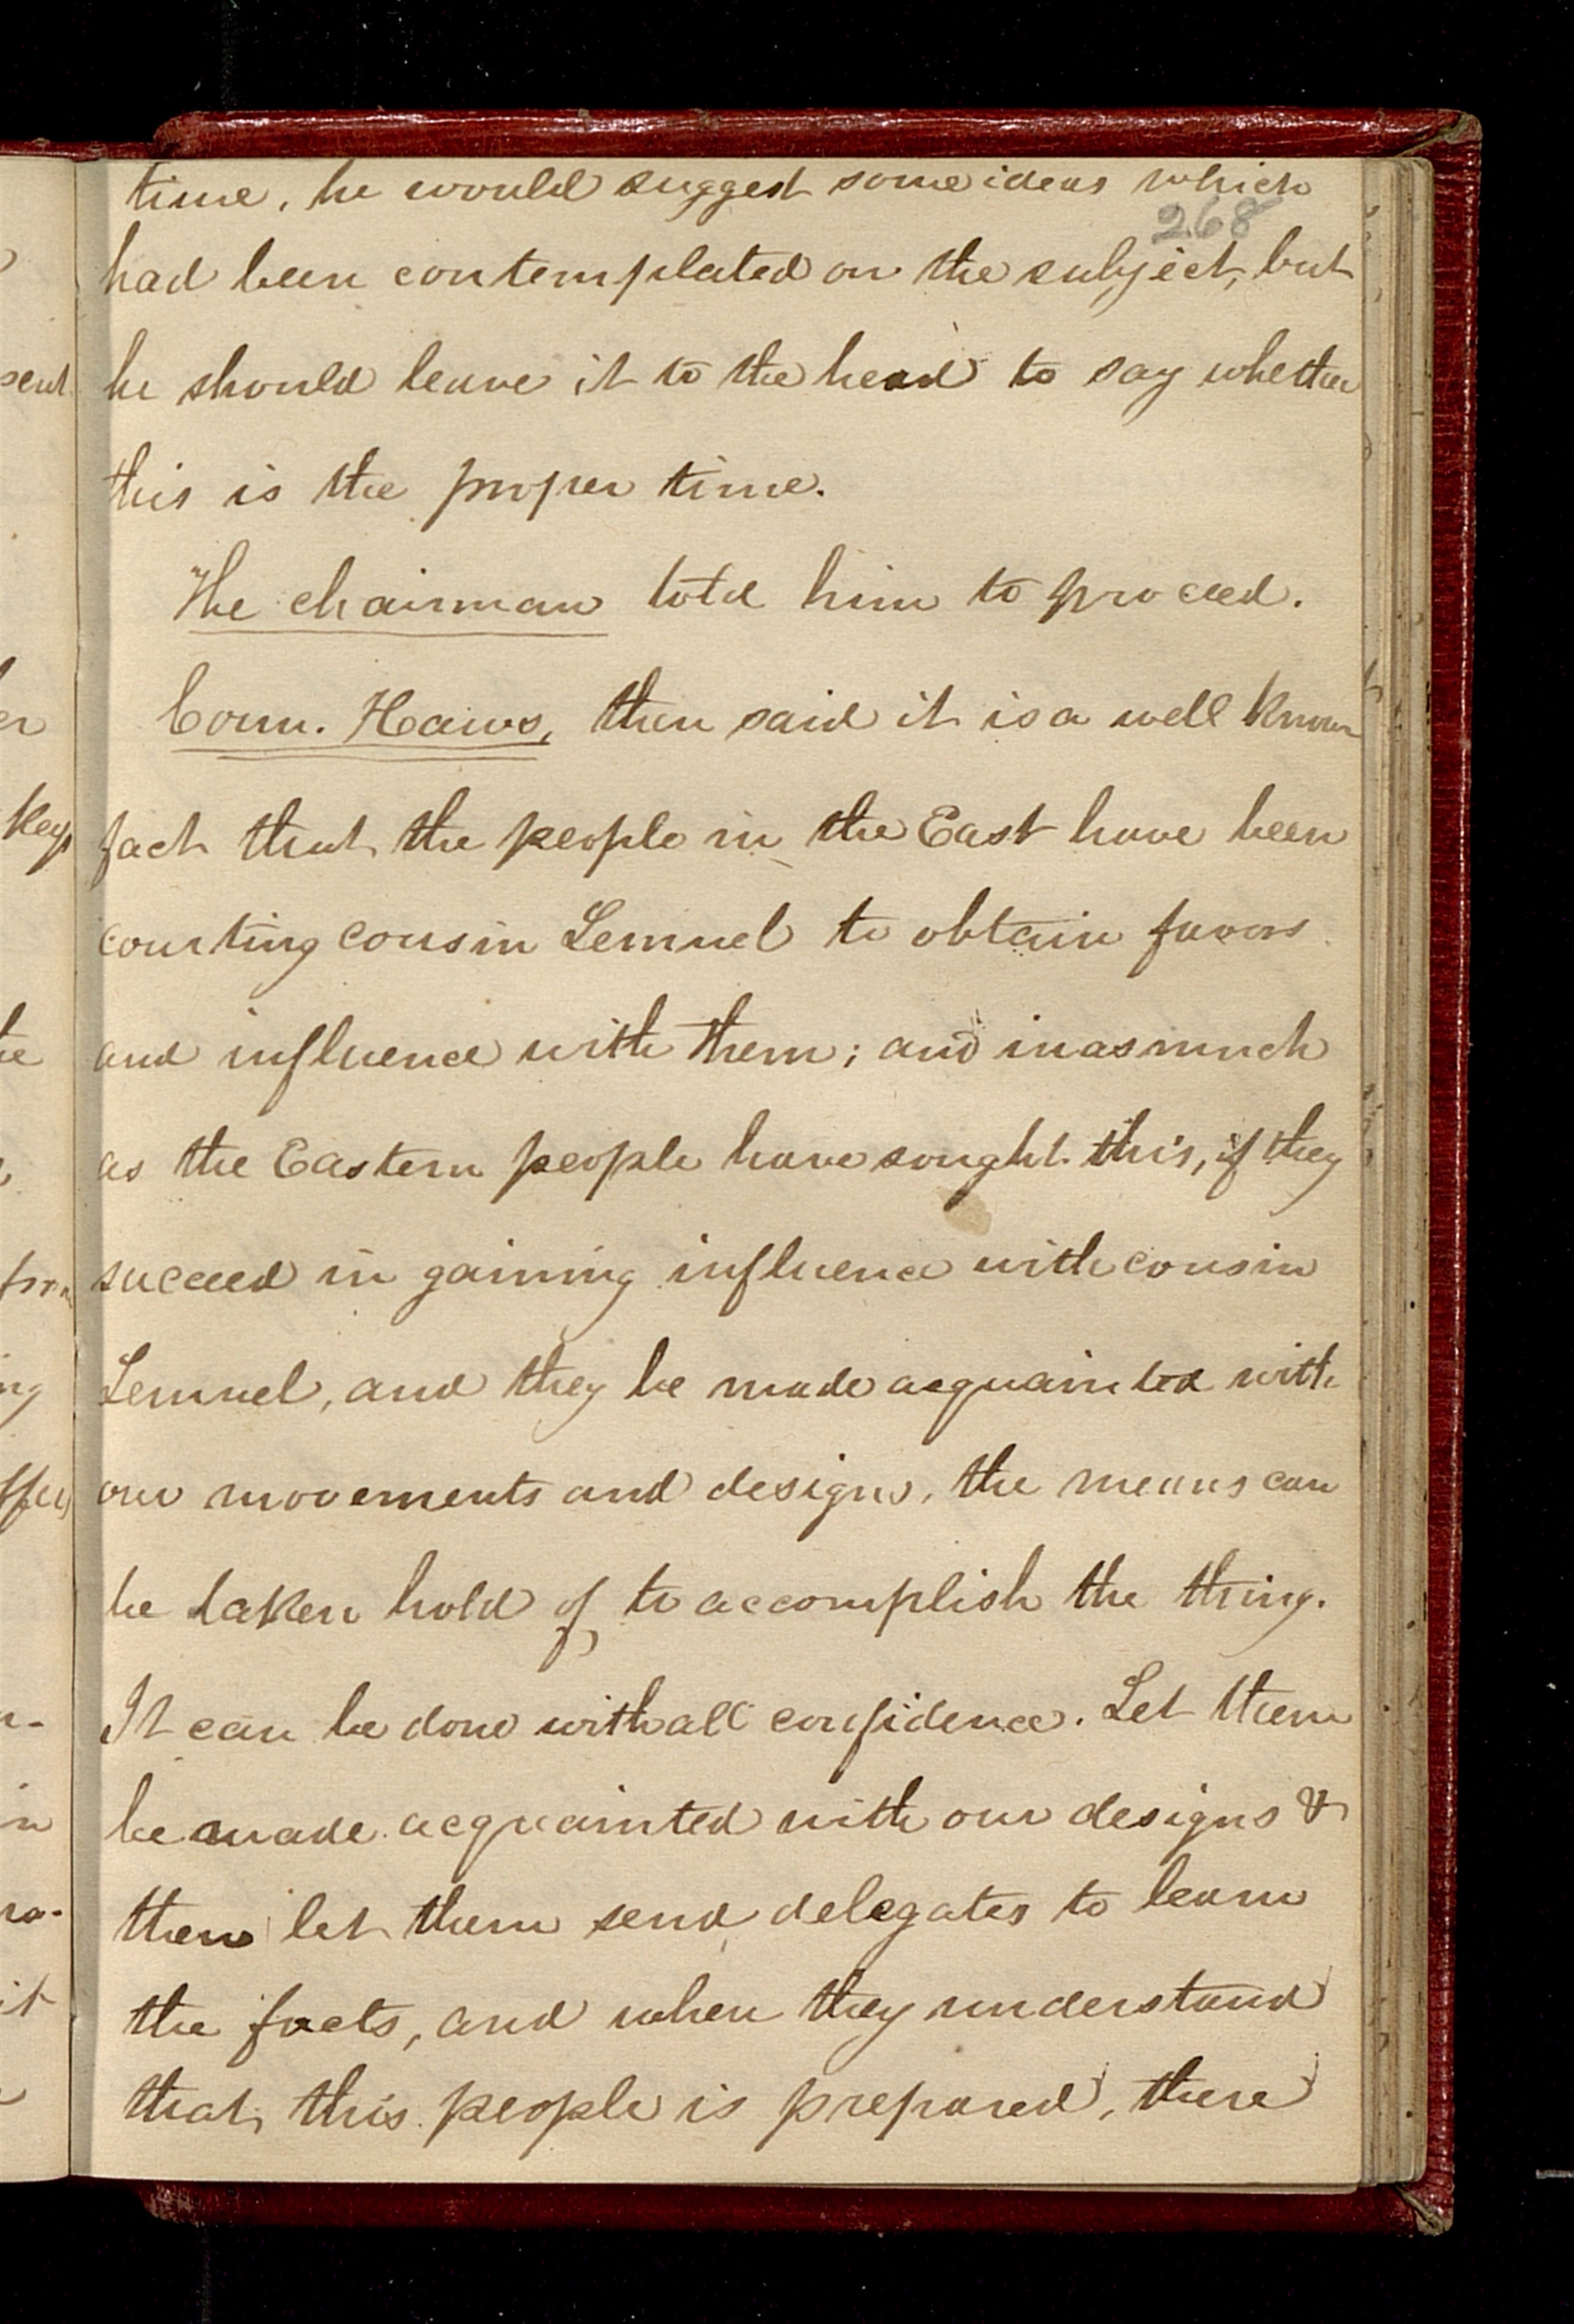 time, he would suggest some ideas which
268
had been contemplated on the subject, but
he should leave it to the head to say whether
this is the proper time.
The chairman told him to proceed.
Coun. Haws, then said it is a well known
fact that the people in the East have been
courting cousin Lemuel to obtain favors
and influence with them; and inasmuch
as the Eastern people have sought this, if they
succeed in gaining influence with cousin
Lemuel, and they be made acquainted with
our movements and designs, the means can
be taken hold of to accomplish the thing.
It can be done with all confidence. Let them
be made acquainted with our designs &
then let them send delegates to learn
the facts, and when they understand
that this people is prepared, there
sent
er
Keys
te
ing
in
it